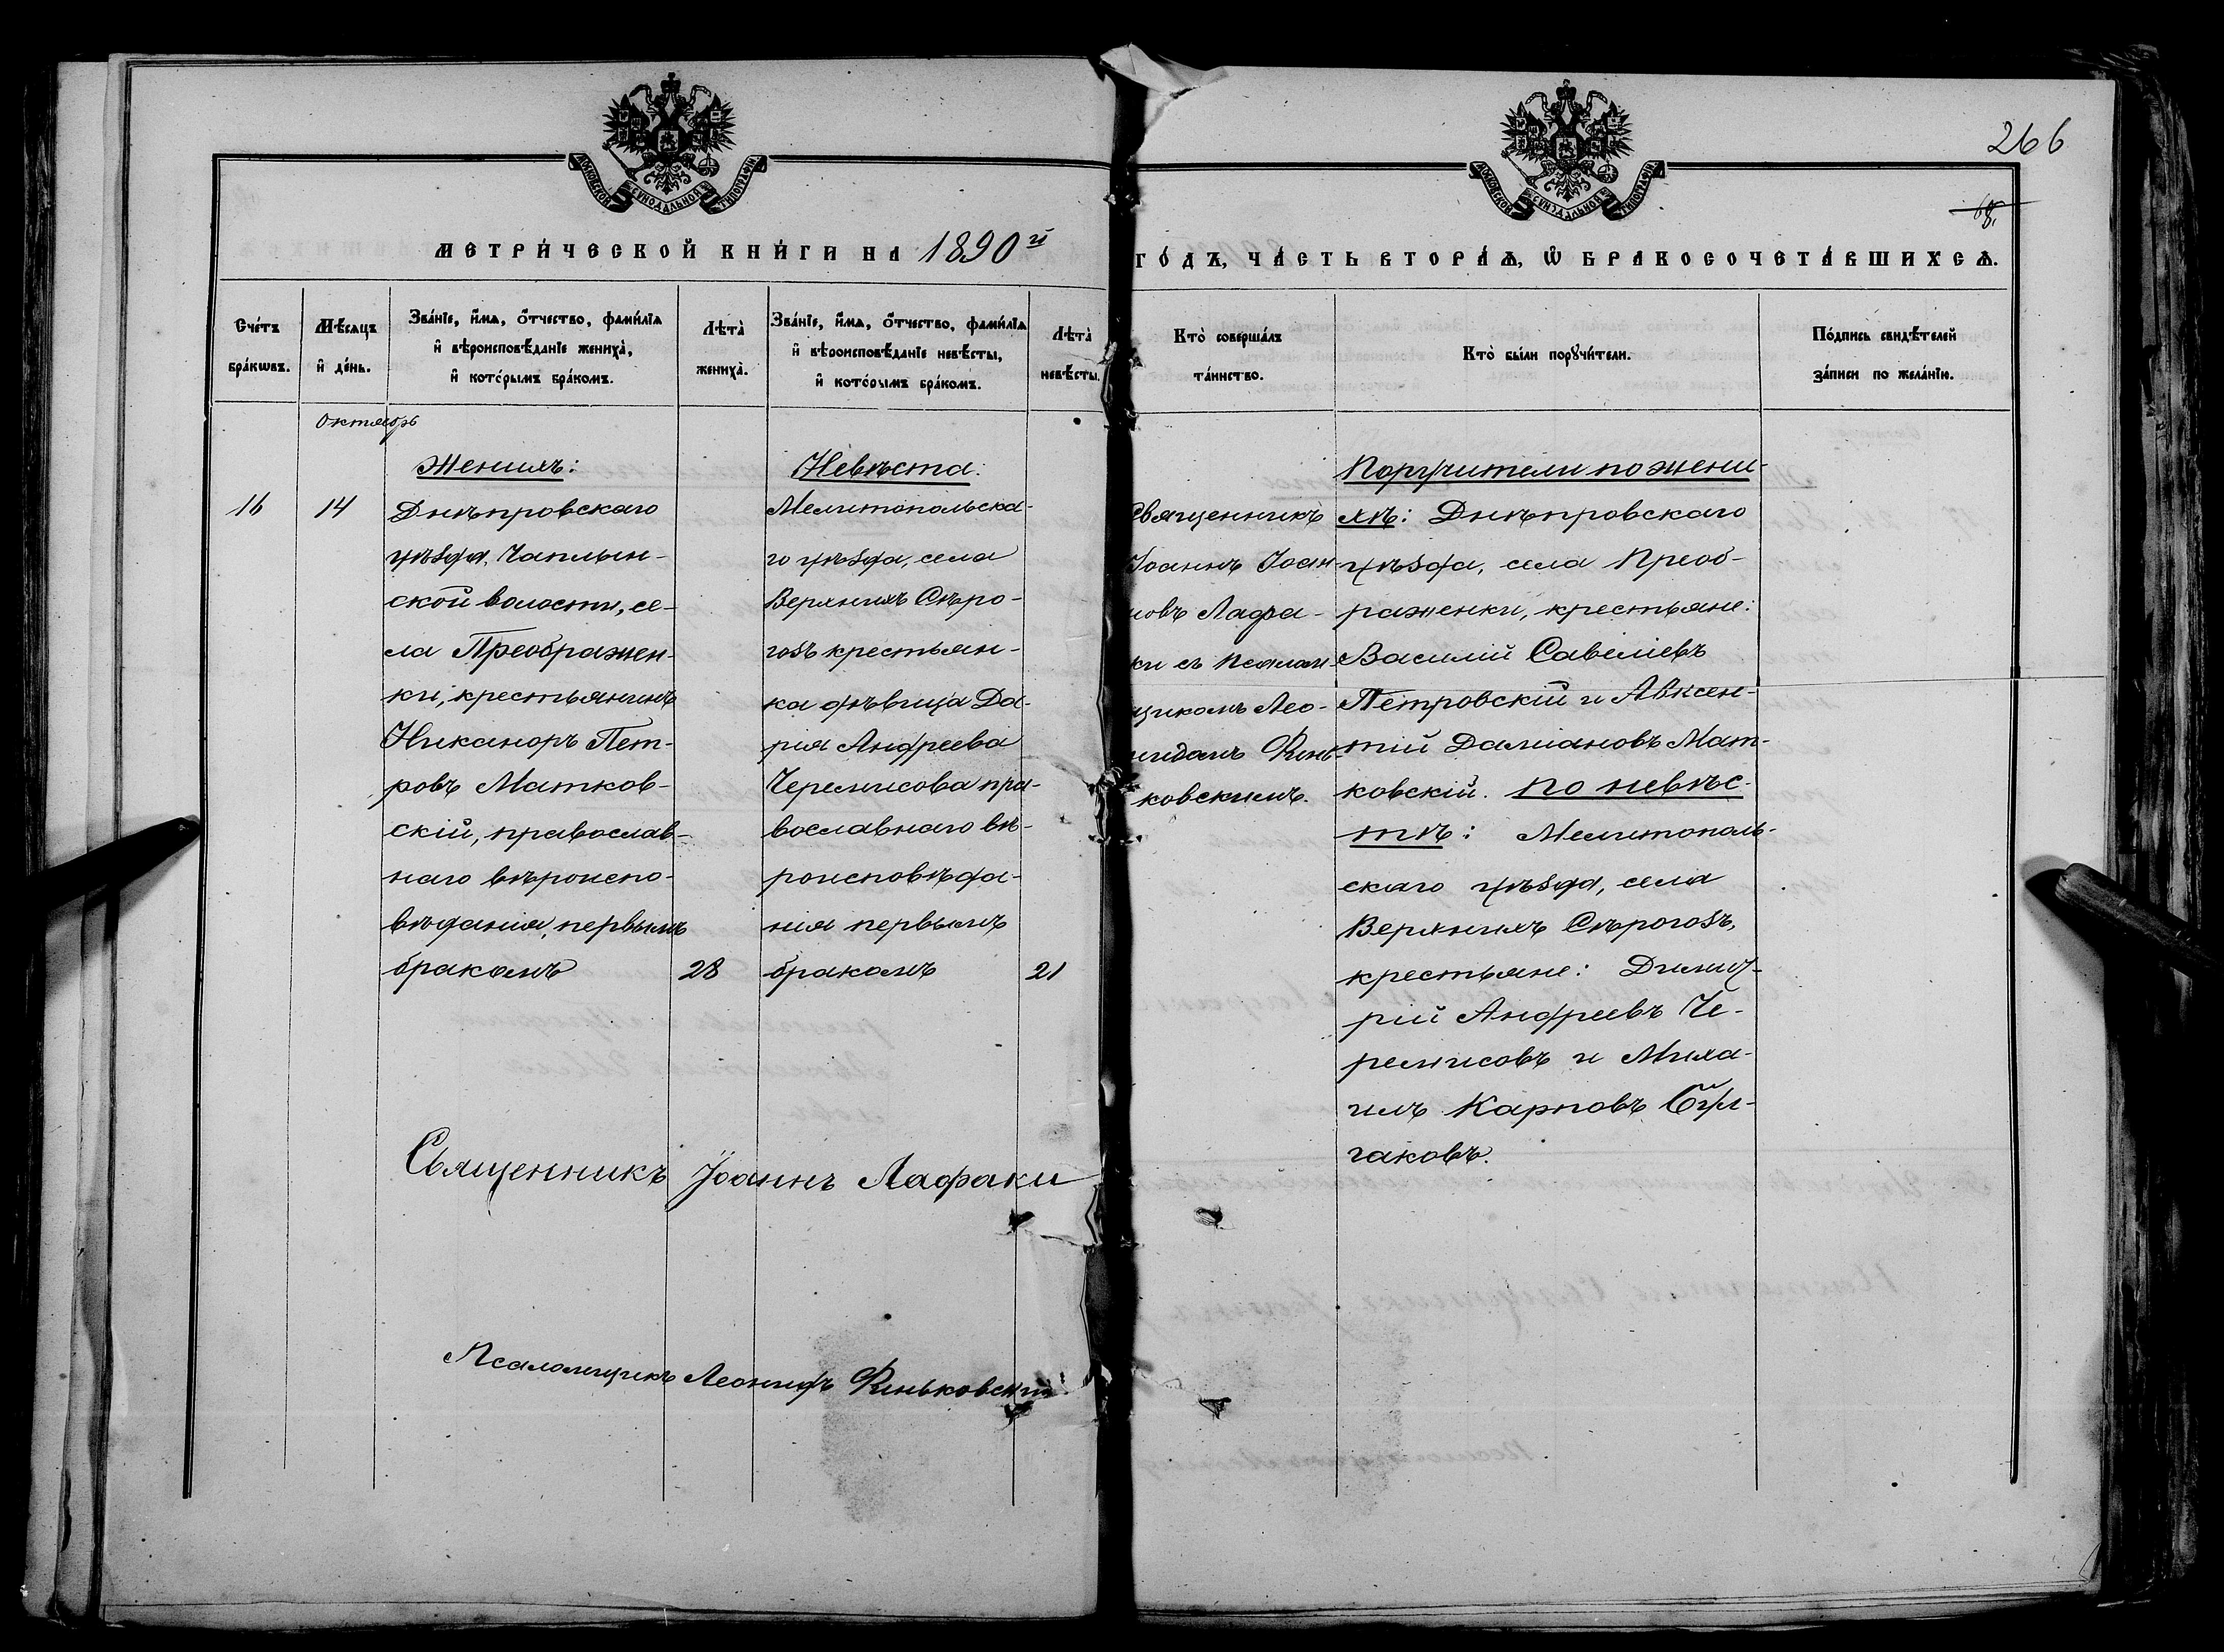 266
68.
МОСКОВСКОЙ СѴНОДАЛЬНОЙ ТИПОГРАФІИ
МОСКОВСКОЙ СѴНОДАЛЬНОЙ ТИПОГРАФІИ
МЕТРИ́ЧЕСКОЙ КНИ́ГИ НА 1890й
ГО́ДЪ, ЧА́СТЬ ВТОРА́Ѧ, Ѡ҆ БРАКОСОЧЕТА́ВШИХСѦ.
Сче́тъ
бра́кѡвъ.
Мѣ́сяцъ
и҆ де́нь.
Зва́нїе, и҆́мѧ, ѻ҆́тчество, фами́лїѧ
и҆ вѣроисповѣ́данїе жениха̀,
и҆ кото́рымъ бра́комъ.
Лѣта̀
жениха̀.
Зва́нїе, и҆́мѧ, ѻ҆́тчество, фами́лїѧ
и҆ вѣроисповѣ́данїе невѣ́сты,
и҆ кото́рымъ бра́комъ.
Лѣта̀
невѣ́сты.
Кто̀ соверша́лъ
та́инство.
Кто̀ бы́ли порꙋчи́тели.
По́дпись свидѣ́телей
за́писи по жела́нїю.
Октябрь
16
14
Женихъ:
Днѣпровскаго
уѣзда, Чаплын-
ской волости, се-
ла Преображен-
ки, крестьянинъ
Никаноръ Пет-
ровъ Матков-
скій, православ-
наго вѣроиспо-
вѣданія, первымъ
бракомъ
28
Невѣста:
Мелитопольска-
го уѣзда, села
Верхнихъ Сѣро-
гозъ крестьян-
ка дѣвица Да-
рія Андреева
Черемисова пра-
вославнаго вѣ-
роисповѣда-
нія первымъ
бракомъ
21
Священникъ
Іоаннъ Іоан-
новъ Лафа-
ки съ псалом-
щикомъ Лео-
нидомъ Финь-
ковскимъ.
Поручители по жени-
хѣ: Днѣпровскаго
уѣзда, села Преоб-
раженки, крестьяне:
Василій Савеліевъ
Петровскій и Авксен-
тій Даміановъ Мат-
ковскій. По невѣс-
тѣ: Мелитополь-
скаго уѣзда, села
Верхнихъ Сѣрогозъ,
крестьяне: Димит-
рій Андреевъ Че-
ремисовъ и Миха-
илъ Карповъ Бул-
гаковъ.
Священникъ Іоаннъ Лафаки
Псаломщикъ Леонидъ Финьковскій